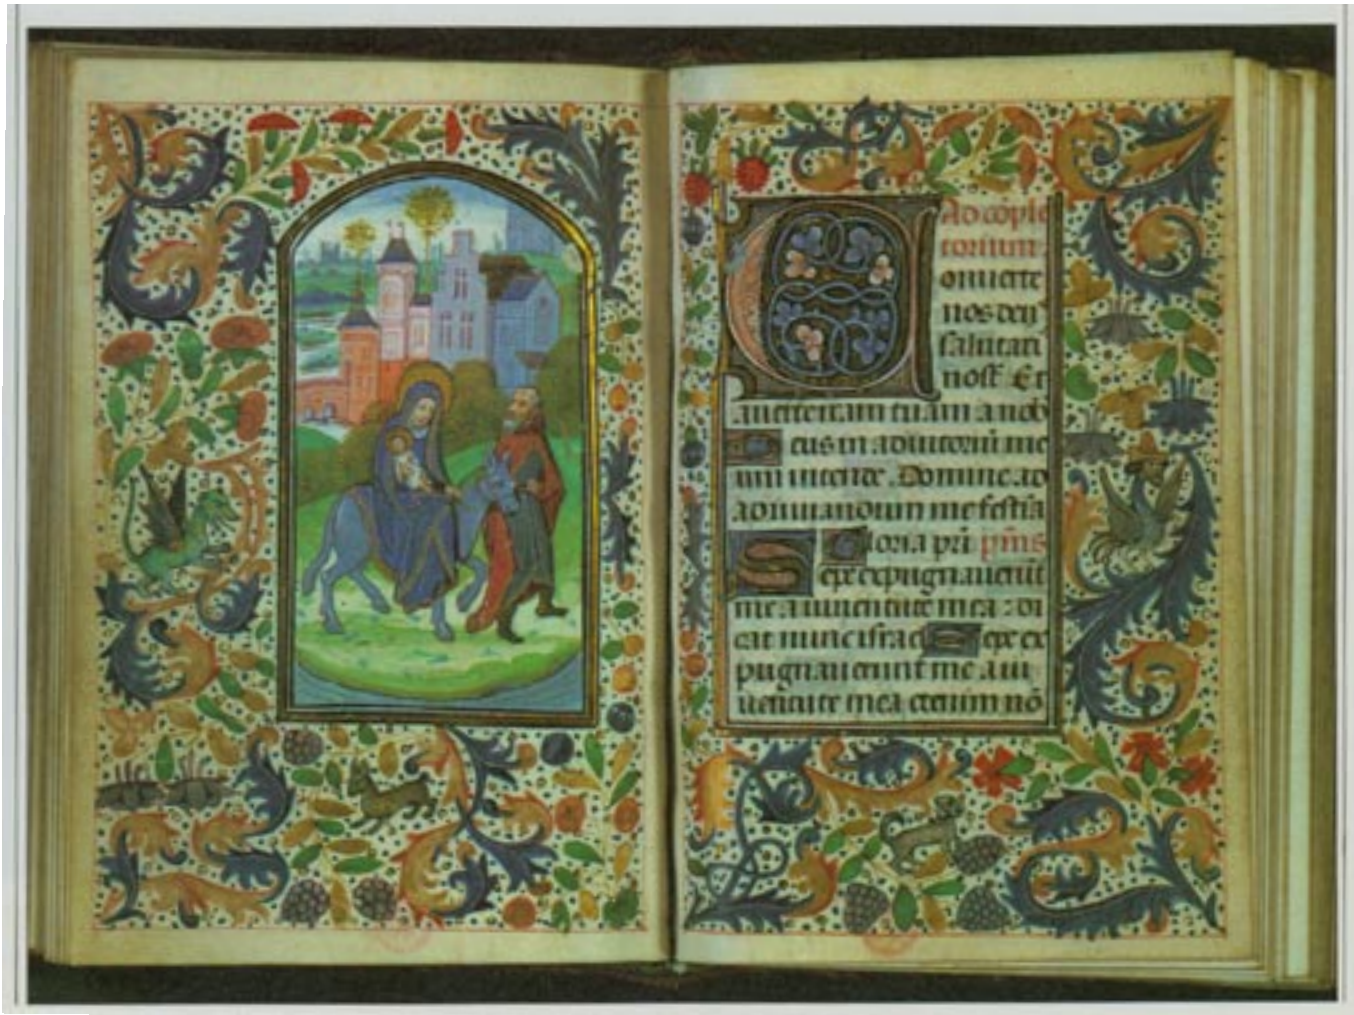 Ad cōple
torium
onuerte
nos deꝰ
salutari
nostr̄ Et
auerte iram tuam a nob
eus in adiutoriū me
um intende. Domine ad
adiuuandum me festīa
Gloria pri pm̄s
Sepe expugnauerūt
me a iuuentute mea: di
cat nunc israel Sepe ex
pugnauerunt me a iu
uentute mea etenim nō